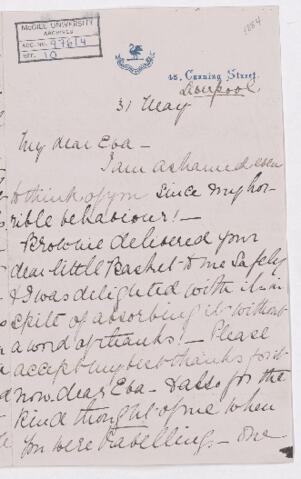 McGILL UNIVERSITY
ARCHIVES
ACC. NO. 976/4
REF. 10
1884
45, Canning Street.
Liverpool.
31 May
My dear Eva -
I am ashamed even
to think of you since my hor-
rible behaviour! -
Brownie delivered your
dear little Basket to me safely
& I was delighted with it - in
spite of absorbing it without
a word of thanks! - Please
accept my best thanks for it
now dear Eva - & also for the
kind thought of me when
you were travelling - one